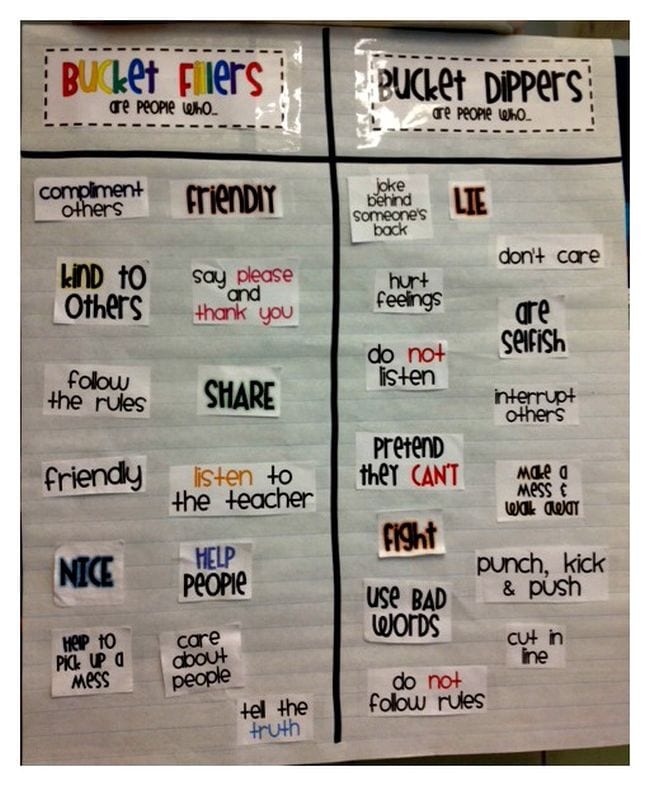 Bucket Fillers
are people who...
compliment
others
friendly
kind to
others
say please
and
thank you
follow
the rules
SHARE
friendly
listen to
the teacher
NICE
HELP
people
Help to
pick up a
mess
care
about
people
tell the
truth
Bucket Dippers
are people who...
joke
behind
someone's
back
LIE
don't care
hurt
feelings
are
selfish
do not
listen
interrupt
others
pretend
they CAN'T
make a
mess &
walk away
fight
punch, kick
& push
use BAD
words
cut in
line
do not
follow rules